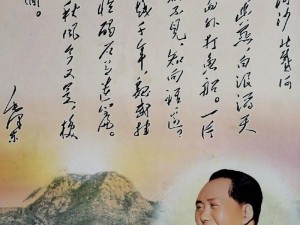 淘沙 北戴河
幽燕,白浪滔天
岛外打鱼船。一片
都不见,知向谁边
越千年,魏武挥
碣石有遗篇。
秋风今又是,换
间。
毛泽东